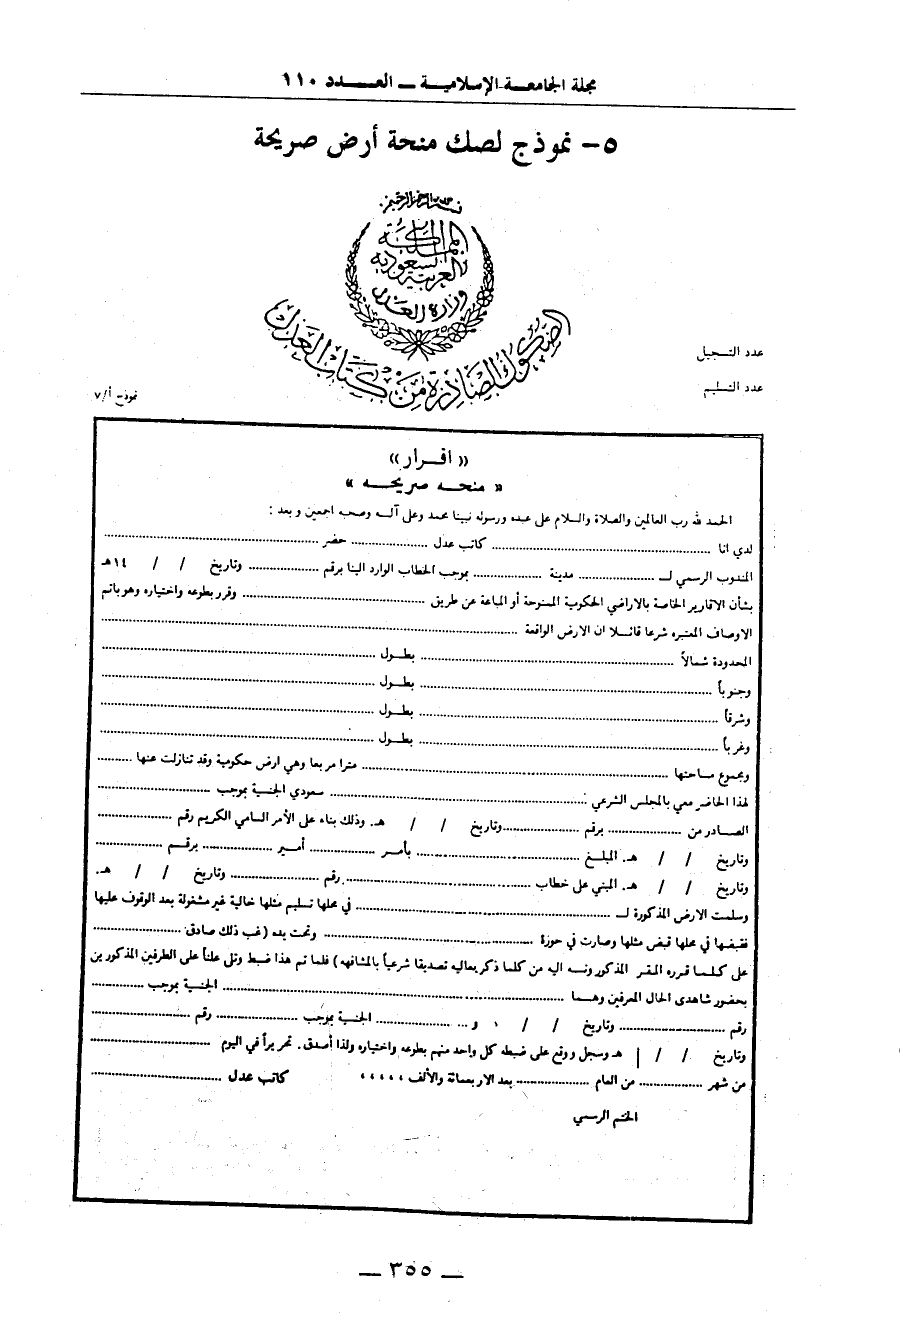 مجلة الجامعة الإسلامية ـ العدد ١١٠
٥- نموذج لصك منحة أرض صريحة
بسم الله الرحمن الرحيم
المملكة
العربية السعودية
وزارة العدل
الصكوك الصادرة من كتاب العدل
عدد التسجيل
عدد التسليم
نموذج أ/٧
«اقرار»
«منحه صريحه»
الحمد لله رب العالمين والصلاة والسلام على عبده ورسوله نبينا محمد وعلى آله وصحبه اجمعين وبعد :
لدي انا .................... كاتب عدل .................... حضر ....................
المندوب الرسمي لـ .................... مدينة .................... بموجب الخطاب الوارد الينا برقم .................... وتاريخ / / ١٤هـ
بشأن الاقارير الخاصة بالاراضي الحكومية الممنوحة أو المباعة عن طريق .................... وقرر بطوعه واختياره وهو باتم
الاوصاف المعتبره شرعا قائلا ان الارض الواقعة ....................
المحدودة شمالاً .................... بطول ....................
وجنوباً .................... بطول ....................
وشرقاً .................... بطول ....................
وغرباً .................... بطول ....................
ومجموع مساحتها .................... مترا مربعا وهي ارض حكومية وقد تنازلت عنها ..........
لهذا الحاضر معي بالمجلس الشرعي : .................... سعودي الجنسية بموجب ....................
الصادر من .................... برقم .................... وتاريخ / / هـ. وذلك بناء على الأمر السامي الكريم رقم ....................
وتاريخ / / هـ. المبلغ .................... بأمر .................... أمير .................... برقم ....................
وتاريخ / / هـ. المبني على خطاب .................... رقم .................... وتاريخ / / هـ.
وسلمت الارض المذكورة لـ .................... في محلها تسليم مثلها خالية غير مشغولة بعد الوقوف عليها
فقبضها في محلها قبض مثلها وصارت في حوزة .................... وتحت يده (غب ذلك صادق ....................
على كلما قرره المقر المذكور ونسه اليه من كلما ذكر بعاليه تصديقا شرعياً بالمشافهه) فلما تم هذا ضبط وتلى علناً على الطرفين المذكورين
بحضور شاهدى الحال المعرفين وهما .................... الجنسية بموجب ....................
رقم .................... وتاريخ / / ، و .................... الجنسية بموجب .................... رقم ....................
وتاريخ / / هـ وسجل ووقع على ضبطه كل واحد منهم بطوعه واختياره ولذا أصدق. تحريراً في اليوم ....................
من شهر .................... من العام .................... بعد الاربعمائة والألف ،،،،، كاتب عدل ....................
الختم الرسمي
ـ ٣٥٥ ـ